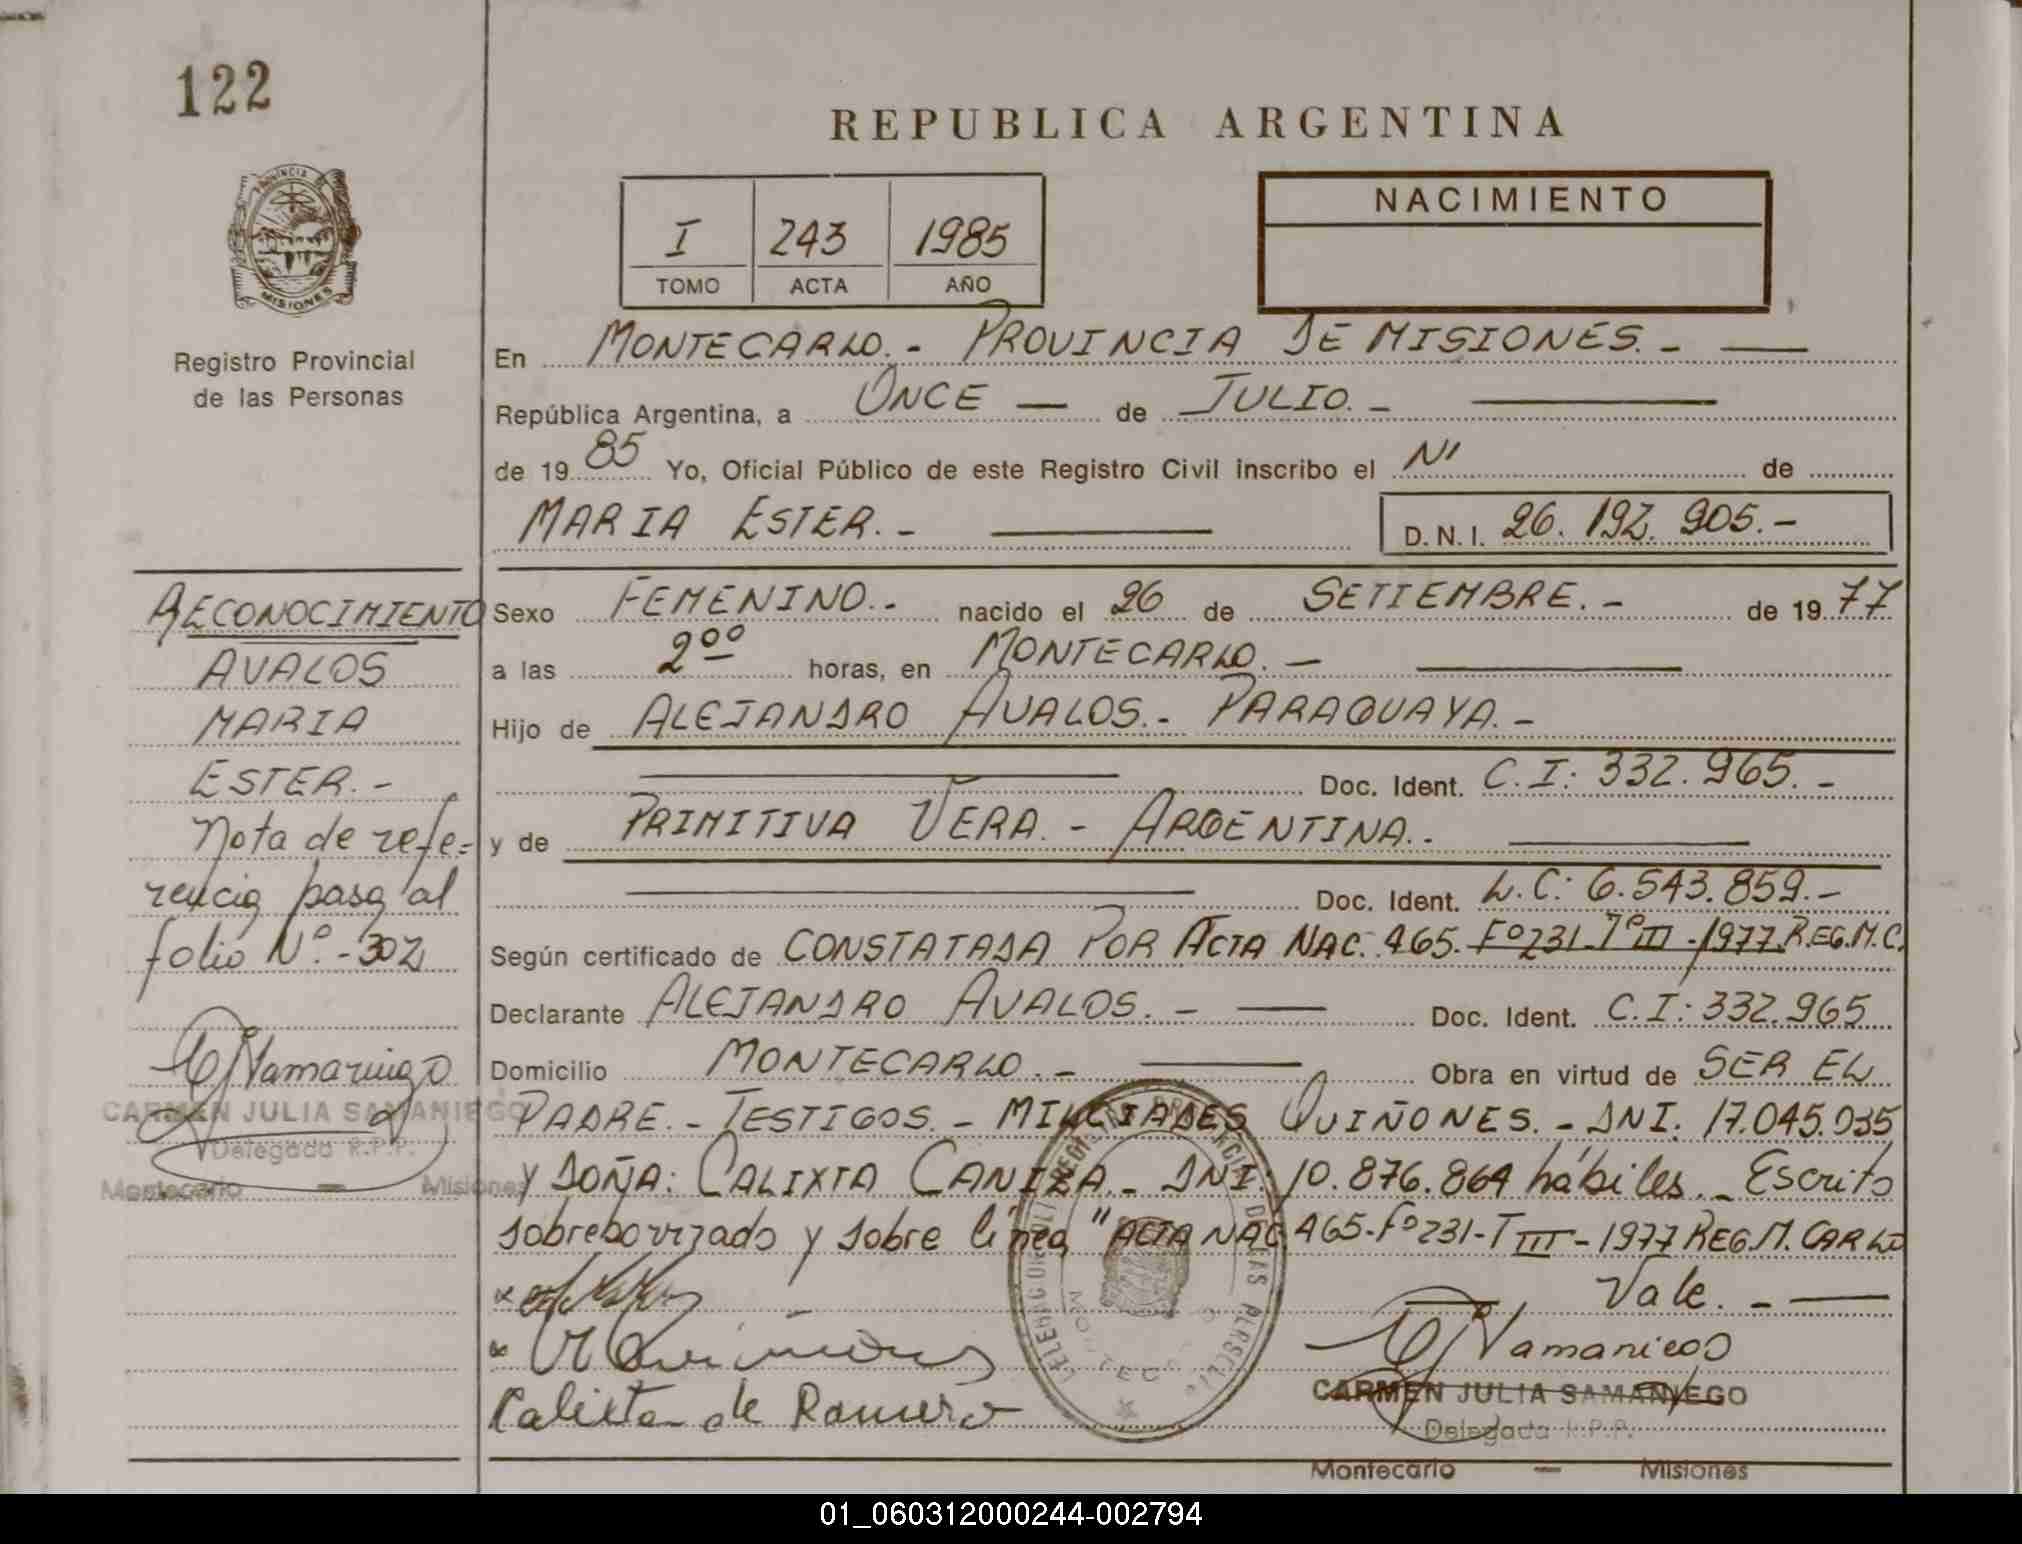 122
REPUBLICA ARGENTINA
PROVINCIA DE
MISIONES
Registro Provincial
de las Personas
I 243 1985
TOMO ACTA AÑO
NACIMIENTO
En MONTECARLO.- PROVINCIA DE MISIONES.-
República Argentina, a ONCE — de JULIO.-
de 19 85 Yo, Oficial Público de este Registro Civil inscribo el N' de
MARIA ESTER.-
D.N.I. 26.192.905.-
Sexo FEMENINO.- nacido el 26 de SETIEMBRE.- de 19 77
a las 2ºº horas, en MONTECARLO.-
Hijo de ALEJANDRO AVALOS.- PARAGUAYA.-
Doc. Ident. C.I: 332.965.-
y de PRIMITIVA VERA.- ARGENTINA.-
Doc. Ident. L.C: 6.543.859.-
Según certificado de CONSTATADA POR ACTA NAC. 465. Fº 231-Tº III-1977 REG.M.C.
Declarante ALEJANDRO AVALOS.- Doc. Ident. C.I: 332.965
Domicilio MONTECARLO.- Obra en virtud de SER EL
PADRE.- TESTIGOS.- MILCIADES QUIÑONES.- DNI. 17.045.035
Y DOÑA: CALIXTA CANIZA.- DNI: 10.876.864 hábiles.- Escrito
sobreborrado y sobre línea "ACTA NAC 465-Fº 231-T III-1977 REG.M. CARLO
Vale.-
Calixta de Romero
CARMEN JULIA SAMANIEGO
Delegada R.P.P.
Montecarlo — Misiones
RECONOCIMIENTO
AVALOS
MARIA
ESTER.-
Nota de refe=
rencia pasa al
folio Nº.-302
CARMEN JULIA SAMANIEGO
Delegada R.P.P.
Montecarlo — Misiones
01_060312000244-002794